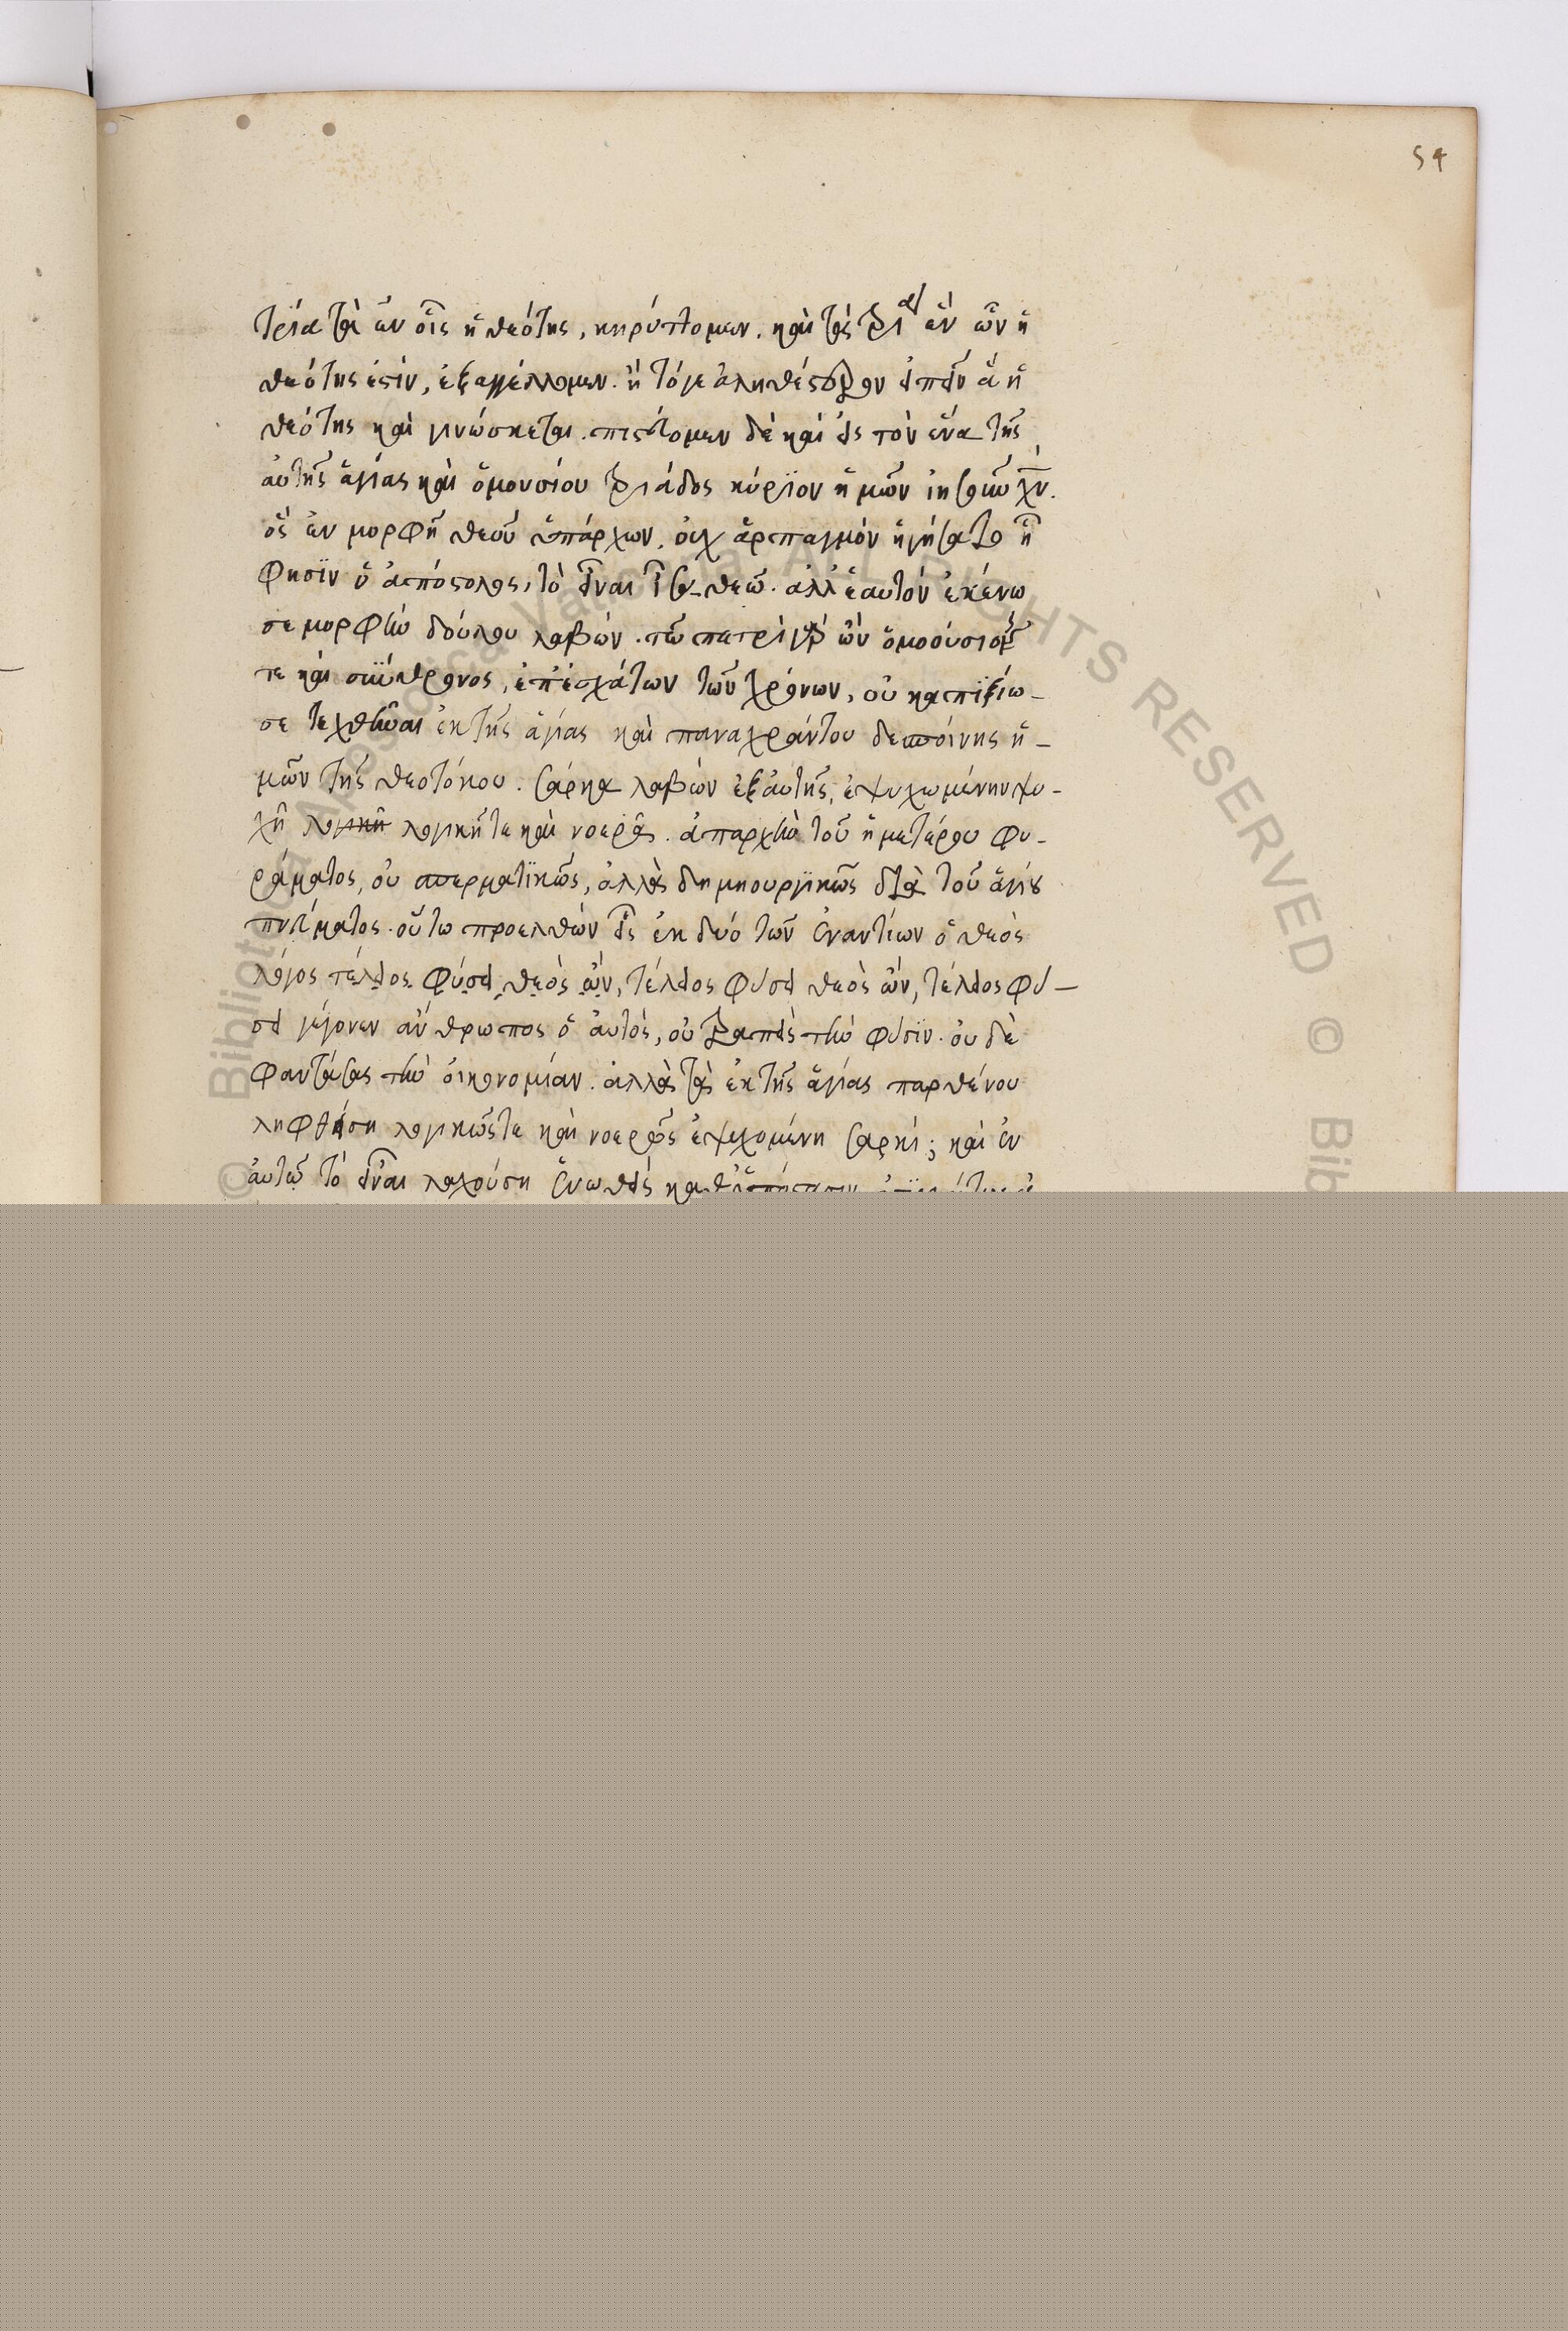 54
τρία τὰ ἐν οἷς ἡ θεότης, κηρύττομεν. καὶ τὰς τρεῖς ἐν ὧν ἡ
θεότης ἐστίν, ἐξαγγέλλομεν. ἢ τόγε ἀληθέστερον εἰπεῖν ἃ ἡ
θεότης καὶ γινώσκεται. πιστεύομεν δὲ καὶ εἰς τὸν ἕνα τῆς
αὐτῆς ἁγίας καὶ ὁμουσίου τριάδος κύριον ἡμῶν ἰησοῦν χν.
ὃς ἐν μορφῇ θεοῦ ὑπάρχων. οὐχ ἁρπαγμὸν ἡγήσατο ᾗ
φησὶν ὁ ἀπόστολος, τὸ εἶναι ἶσα θεῶ. ἀλλ' ἑαυτὸν ἐκένω
σε μορφὴν δούλου λαβών. τῶ πατρὶ γὰρ ὢν ὁμοούσιός
τε καὶ σύνθρονος, ἐπ' ἐσχάτων τῶν χρόνων, οὐ κατηξίω-
σε τεχθῆναι ἐκ τῆς ἁγίας καὶ παναχράντου δεσποίνης ἡ-
μῶν τῆς θεοτόκου. σάρκα λαβὼν ἐξ αὐτῆς, ἐψυχωμένην ψυ-
χῇ λογικῇ λογικῇ τε καὶ νοερᾷ. ἀπαρχὴν τοῦ ἡμετέρου φυ-
ράματος, οὐ σπερματικῶς, ἀλλὰ δημιουργικῶς διὰ τοῦ ἁγίου
πνεύματος. οὕτω προελθὼν εἷς ἐκ δύο τῶν ἐναντίων ὁ θεὸς
λόγος τέλειος φύσει θεὸς ὤν, τέλειος φύσει θεὸς ὤν, τέλειος φύ-
σει γέγονεν ἄνθρωπος ὁ αὐτός, οὐ τραπεὶς τὴν φύσιν. οὐδὲ
φαντάσας τὴν οἰκονομίαν. ἀλλὰ τὰ ἐκ τῆς ἁγίας παρθένου
ληφθείση λογικῶς τε καὶ νοερῶς ἐψυχομένη σαρκί; καὶ ἐν
αὐτῶ τὸ εἶναι λαχούση ἑνωθεὶς καθ' ὑπόστασιν